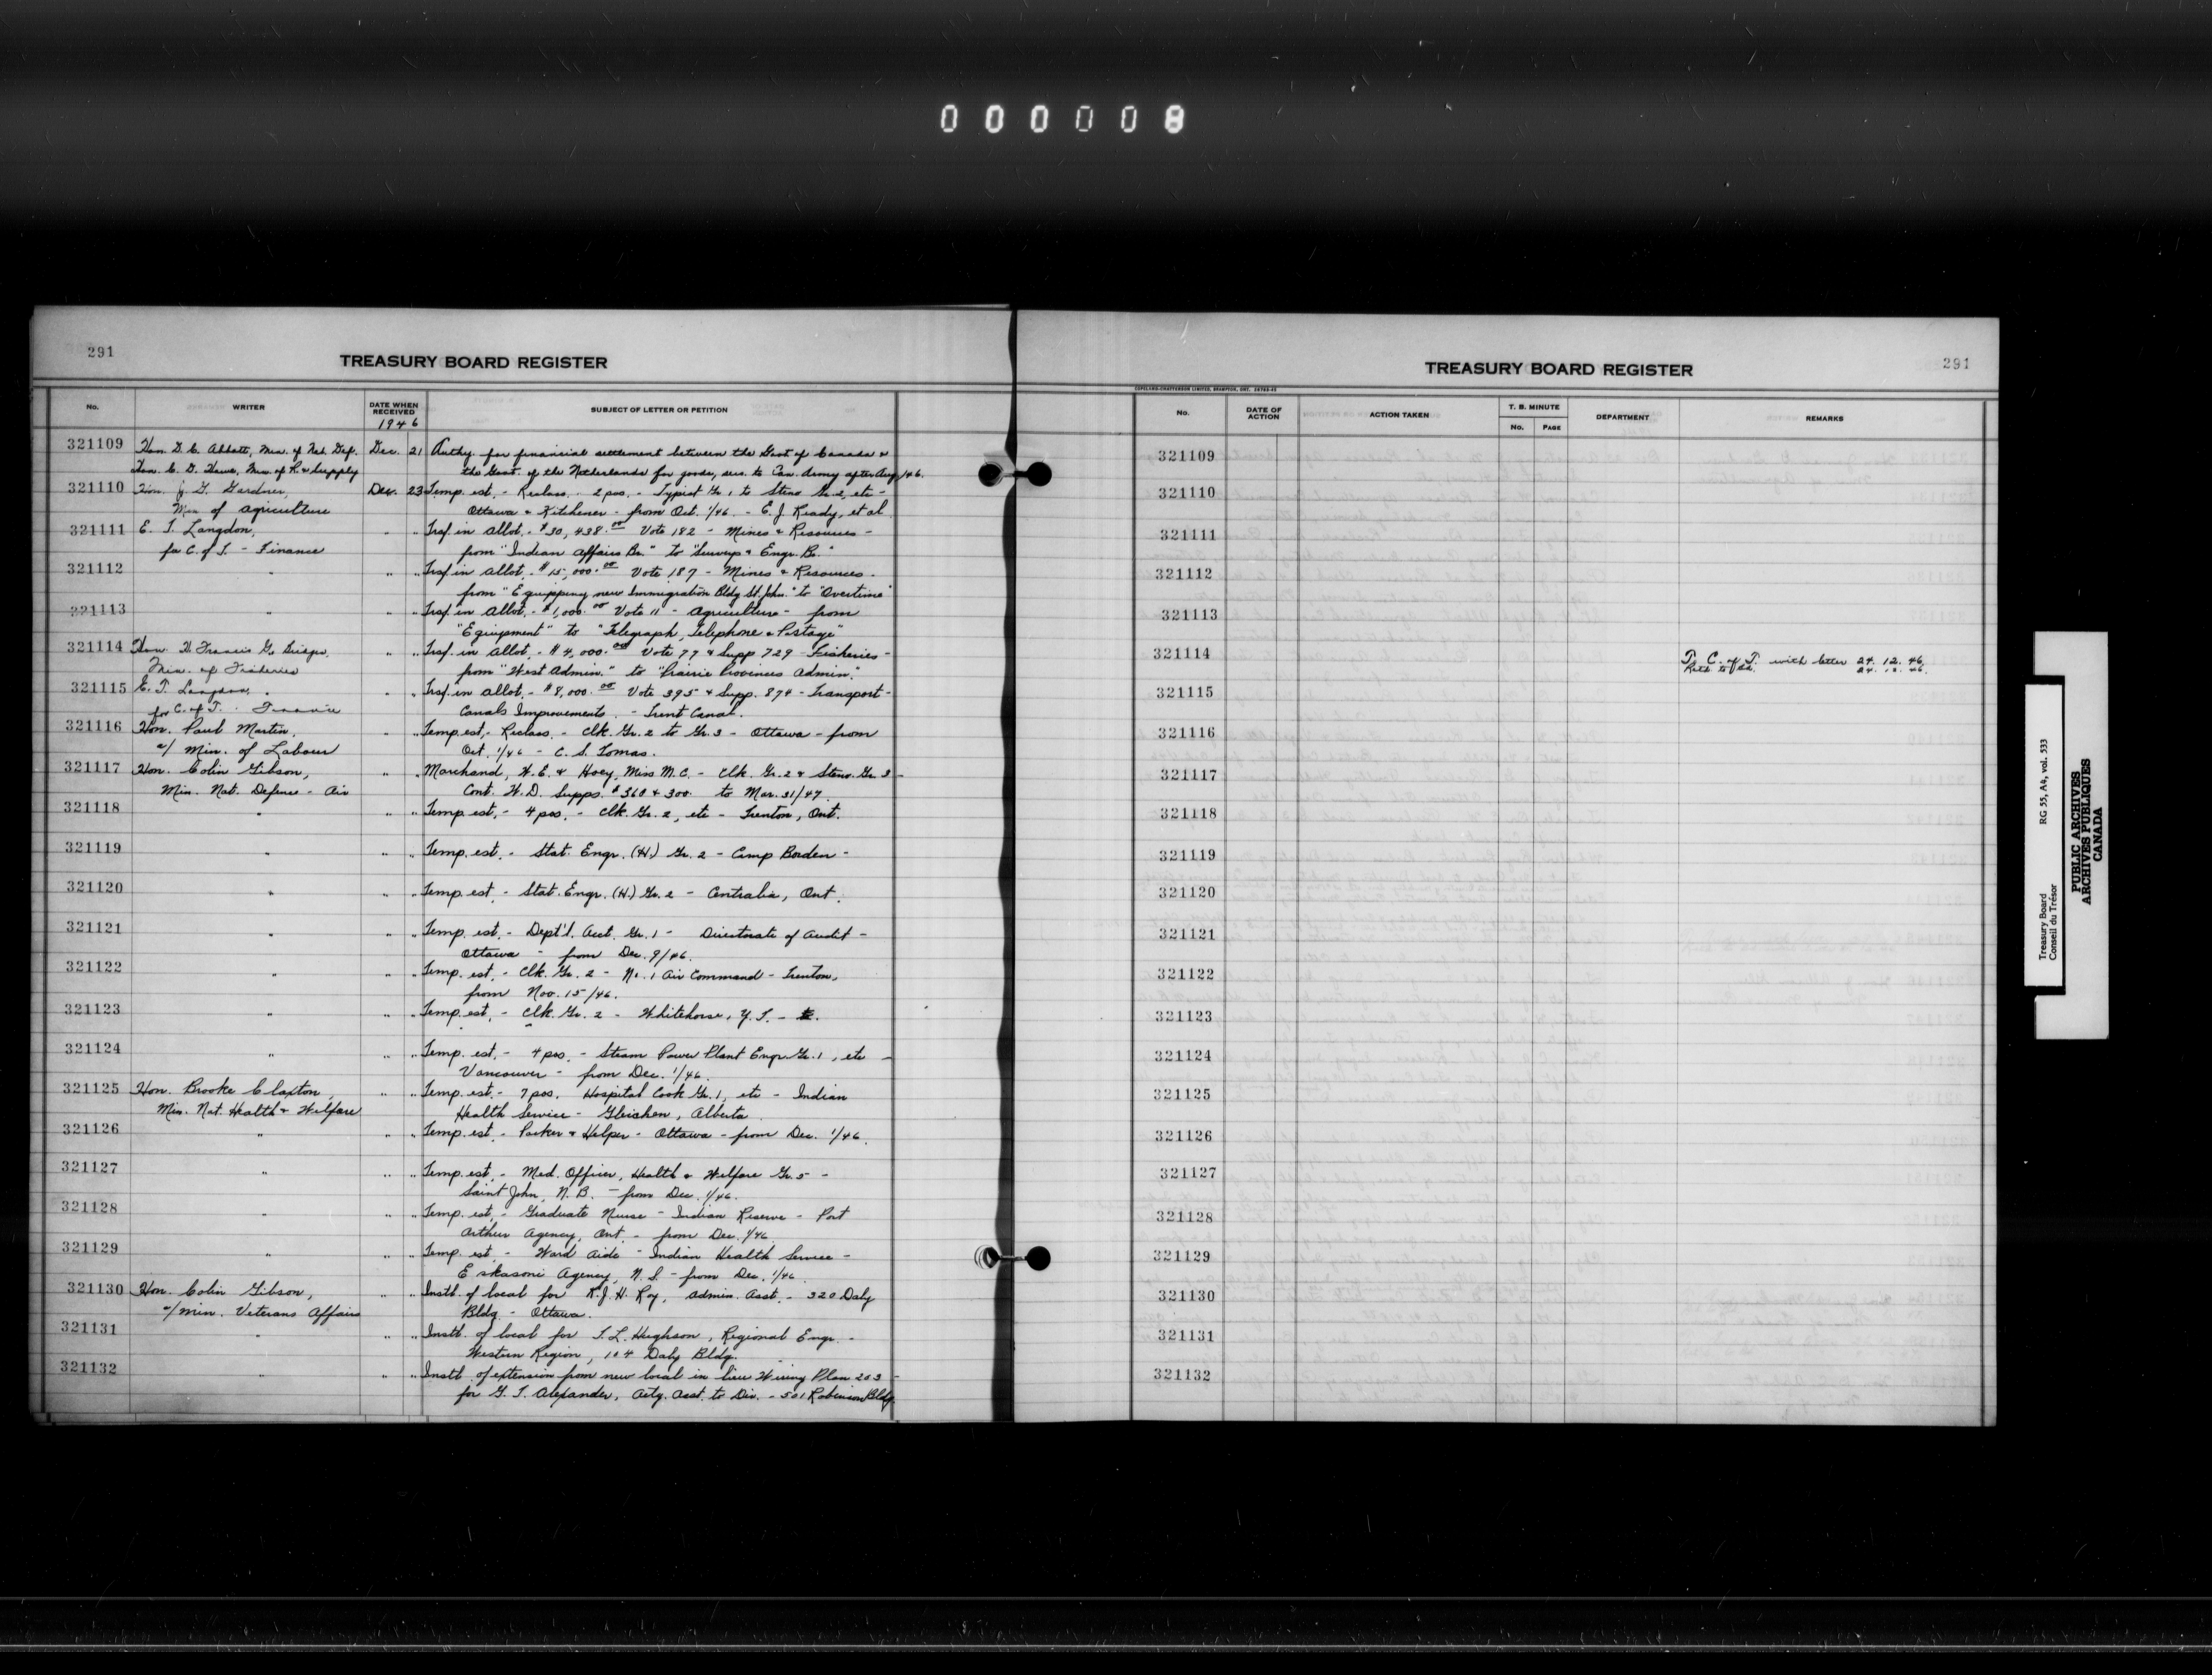 000008
291
TREASURY BOARD REGISTER
No.
WRITER
DATE WHEN RECEIVED
1946
SUBJECT OF LETTER OR PETITION
321109 Hon. D. C. Abbott, Min. of Nat. Def. Dec. 21 Authy. for financial settlement between the Govt of Canada &
Hon. C. D. Howe, Min. of R. & Supply the Govt. of the Netherlands for goods, sers. to Can. Army after Aug 1/46.
321110 Hon. J. G. Gardiner, Dec. 23 Temp. est. - Reclass. - 2 pos. - Typist Gr. 1 to Steno Gr. 2, etc -
Min of Agriculture Ottawa & Kitchener - from Oct. 1/46 - E. J. Ready, et al
321111 E. T. Langdon, " " Trsf. in allot. - $30,438.00 Vote 182 - Mines & Resources -
for C. of T. - Finance from "Indian Affairs Br." to "Surveys & Engr. Br."
321112 " " " Trsf. in allot. - $15,000.00 Vote 187 - Mines & Resources -
from "Equipping new Immigration Bldg St. John" to "Overtime"
321113 " " " Trsf. in allot. - $1,000.00 Vote 11 - Agriculture - from
"Equipment" to "Telegraph, Telephone & Postage"
321114 Hon. H. Francis G. Bridges, " " Trsf. in allot. - $4,000.00 Vote 77 & Supp 729 - Fisheries -
Min. of Fisheries from "West Admin." to "Prairie Provinces Admin."
321115 E. T. Langdon, " " Trsf. in allot. - $8,000.00 Vote 395 & Supp. 874 - Transport -
for C. of T. - Finance Canals Improvements - Trent Canal.
321116 Hon. Paul Martin, " " Temp. est. - Reclass. - Clk. Gr. 2 to Gr. 3 - Ottawa - from
a/ Min. of Labour Oct. 1/46 - C. S. Lomas.
321117 Hon. Colin Gibson, " " Marchand, W. E. & Hoey, Miss M. C. - Clk. Gr. 2 & Steno. Gr. 3 -
Min. Nat. Defence - Air Cont. W. D. Supps. $360 & 300 to Mar. 31/47.
321118 " " " Temp est. - 4 pos. - Clk. Gr. 2, etc - Trenton, Ont.
321119 " " " Temp. est. - Stat. Engr. (H.) Gr. 2 - Camp Borden -
321120 " " " Temp est. - Stat. Engr. (H.) Gr. 2 - Centralia, Ont.
321121 " " " Temp. est. - Dept'l. Acct. Gr. 1 - Directorate of Audit -
Ottawa - from Dec. 9/46.
321122 " " " Temp. est. - Clk. Gr. 2 - No. 1 Air Command - Trenton,
from Nov. 15/46.
321123 " " " Temp. est. - Clk. Gr. 2 - Whitehorse, Y. T. -
321124 " " " Temp. est. - 4 pos. - Steam Power Plant Engr. Gr. 1, etc -
Vancouver - from Dec. 1/46.
321125 Hon. Brooke Claxton, " " Temp. est. - 7 pos. Hospital Cook Gr. 1, etc - Indian
Min. Nat. Health & Welfare Health Service - Gleichen, Alberta.
321126 " " " Temp. est. - Packer & Helper - Ottawa - from Dec. 1/46.
321127 " " " Temp. est. - Med. Officer, Health & Welfare Gr. 5 -
Saint John, N. B. - from Dec. 1/46.
321128 " " " Temp. est. - Graduate Nurse - Indian Reserve - Port
Arthur Agency, Ont. - from Dec. 1/46.
321129 " " " Temp. est. - Ward Aide - Indian Health Service -
Eskasoni Agency, N. S. - from Dec. 1/46.
321130 Hon. Colin Gibson, " " Instl. of local for R. J. H. Roy, Admin. Asst. - 320 Daly
a/Min. Veterans Affairs Bldg - Ottawa.
321131 " " " Instl. of local for T. L. Hughson, Regional Engr. -
Western Region, 104 Daly Bldg.
321132 " " " Instl. of extension from new local in lieu Wiring Plan 203 -
for G. T. Alexander, Actg. Asst. to Dir. - 501 Robinson Bldg.
TREASURY BOARD REGISTER
291
COPELAND-CHATTERSON LIMITED, BRAMPTON, ONT.
No.
DATE OF ACTION
ACTION TAKEN
T. B. MINUTE
No.
PAGE
DEPARTMENT
REMARKS
321109
321110
321111
321112
321113
321114 To C. of T. with letter 24.12.46.
24.12.46.
321115
321116
321117
321118
321119
321120
321121
321122
321123
321124
321125
321126
321127
321128
321129
321130
321131
321132
Treasury Board RG 55, A4, vol. 533
Conseil du Trésor
PUBLIC ARCHIVES
ARCHIVES PUBLIQUES
CANADA